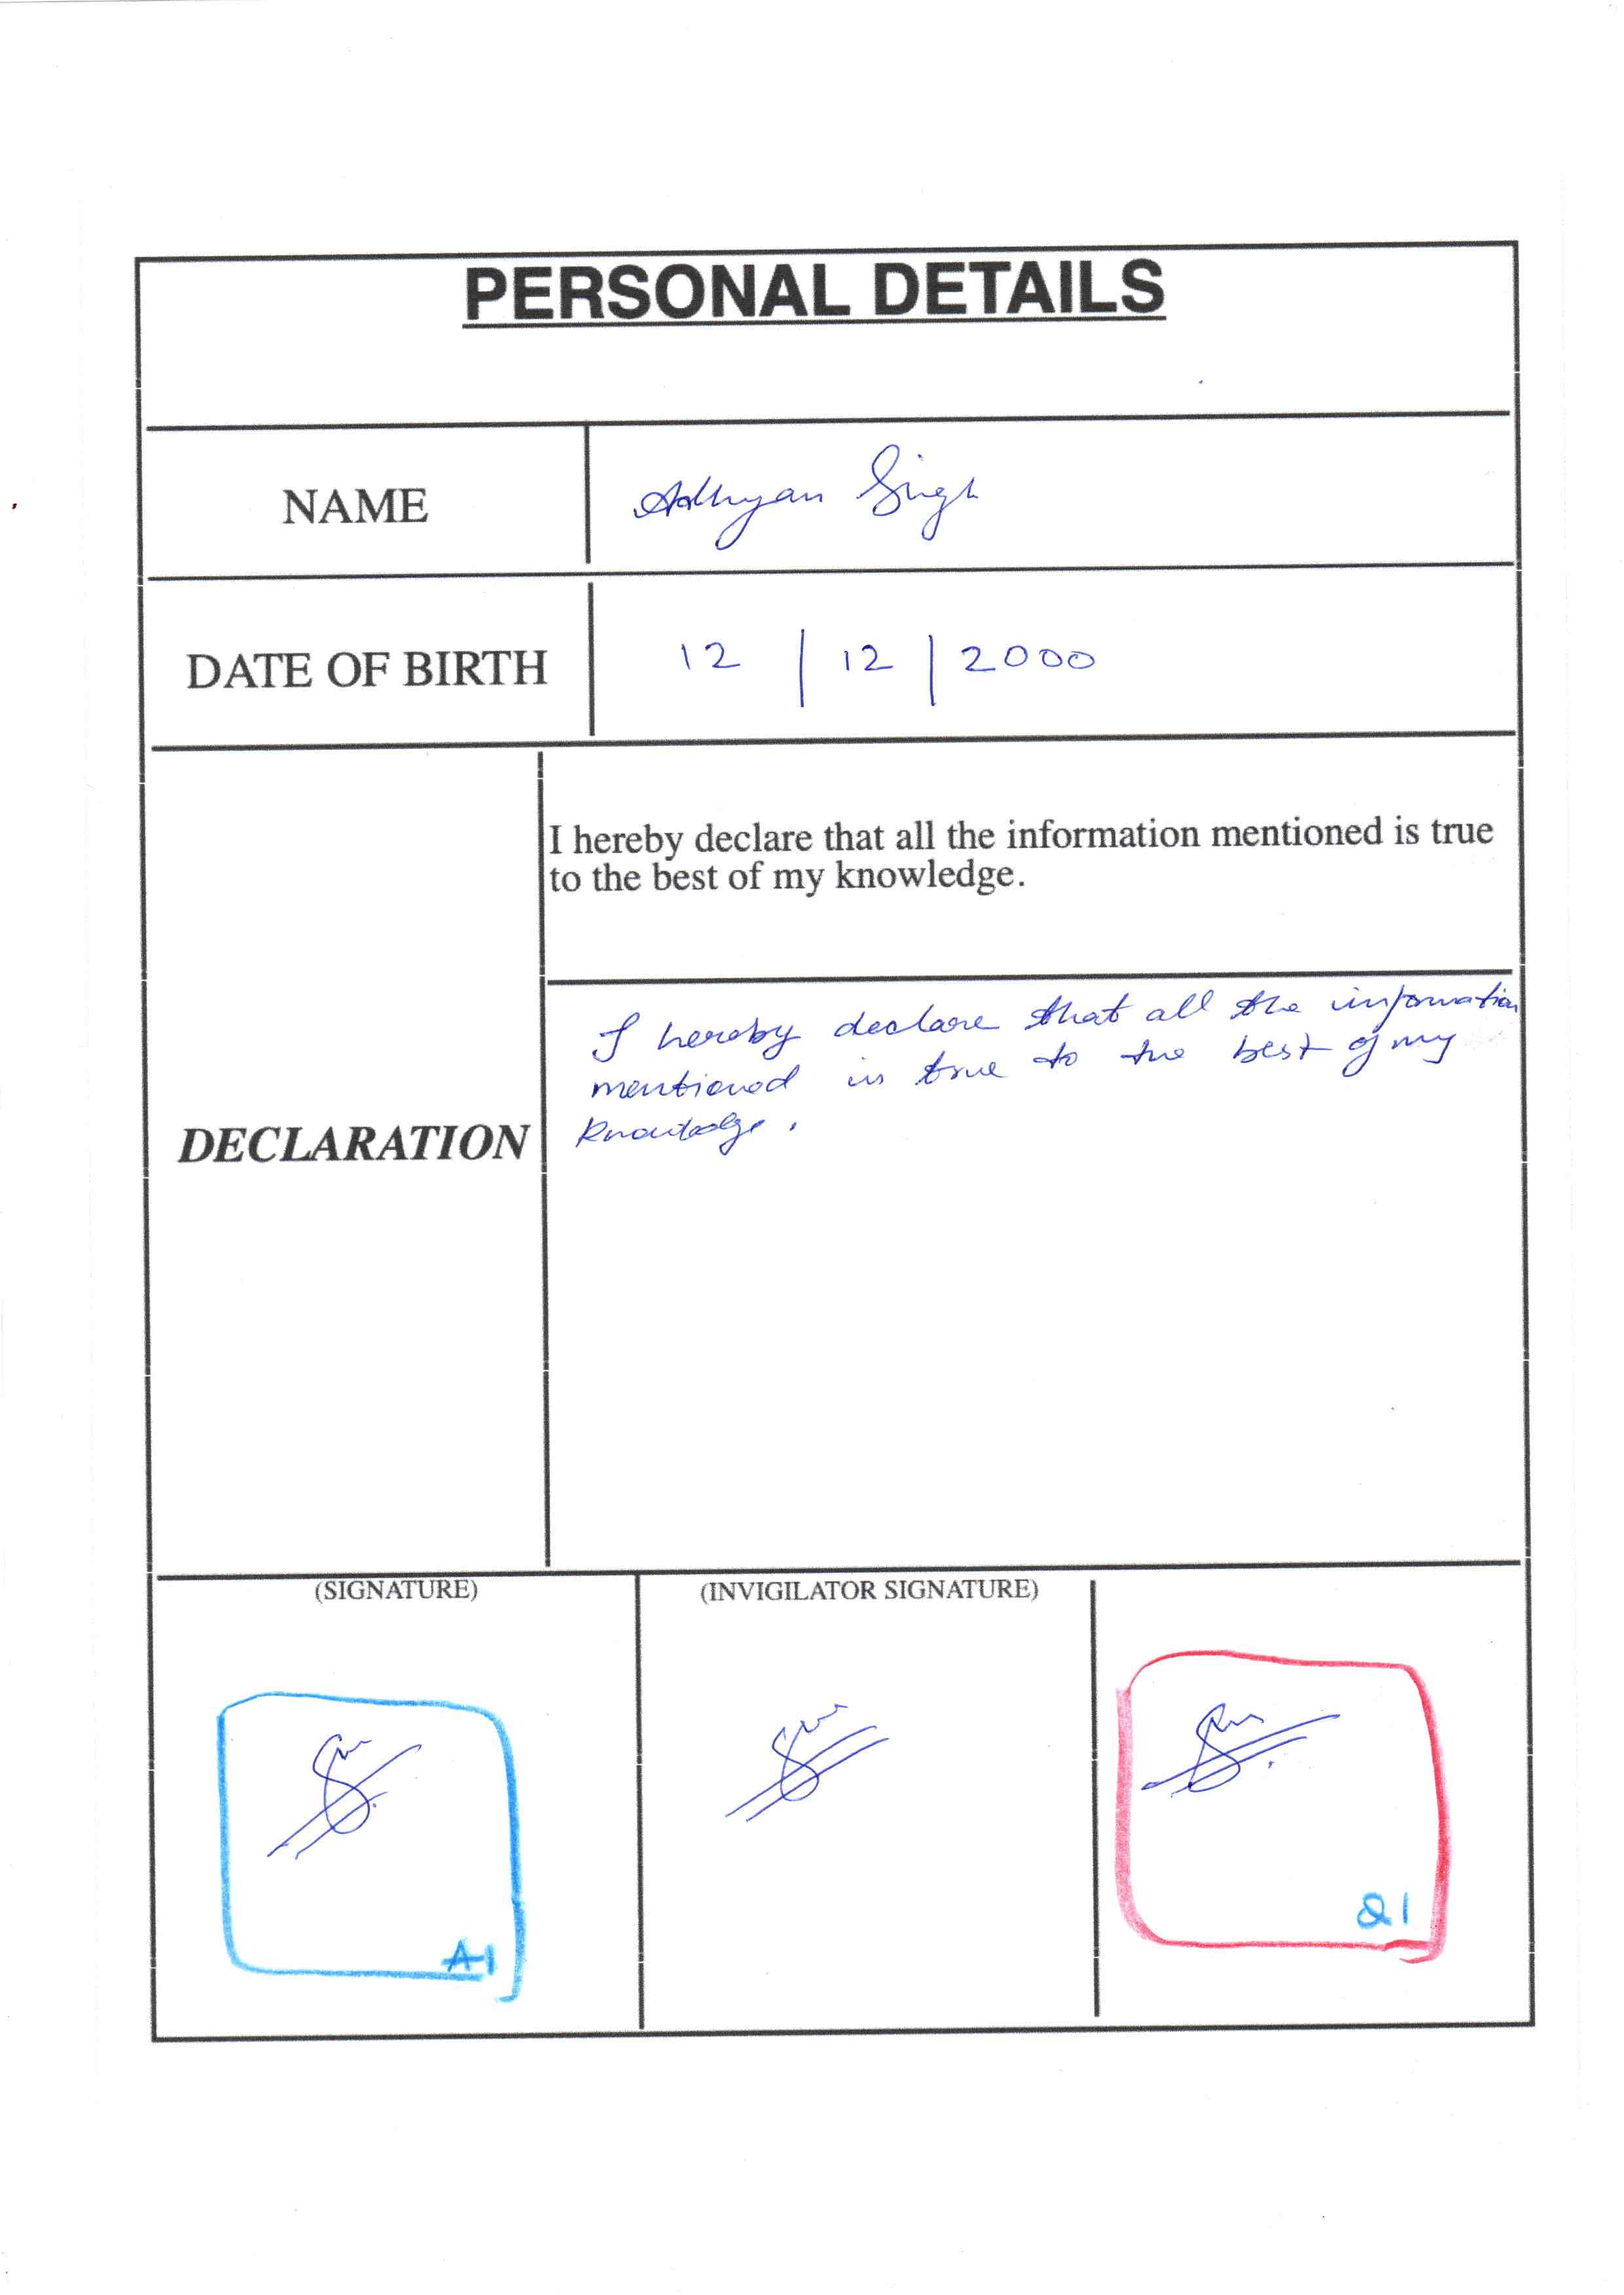 PERSONAL DETAILS
NAME
Adhyan Singh
DATE OF BIRTH
12 / 12 / 2000
I hereby declare that all the information mentioned is true
to the best of my knowledge.
DECLARATION
I hereby declare that all the information
mentioned is true to the best of my
knowledge.
(SIGNATURE)
(INVIGILATOR SIGNATURE)
A1
Q1